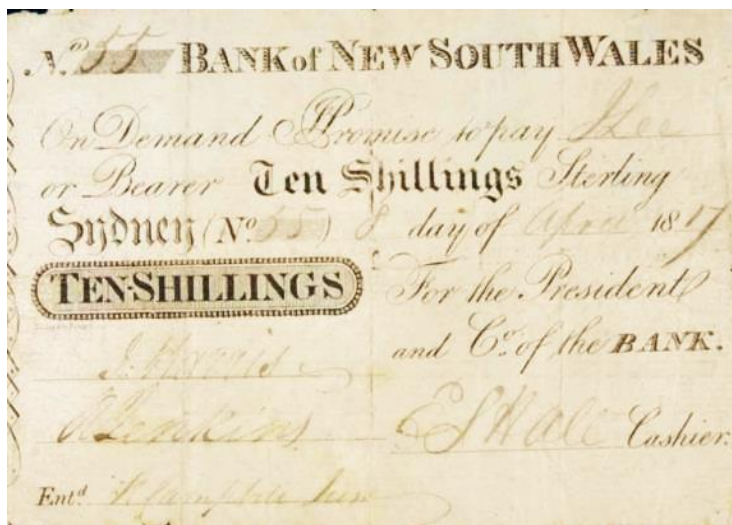 No. 55 BANK of NEW SOUTH WALES
On Demand I Promise to pay J Lee
or Bearer Ten Shillings Sterling
Sydney (No. 55) 8 day of April 1817
TEN-SHILLINGS
For the President
and Co. of the BANK.
J. Harris
R Jenkins
E S Hall Cashier.
Entd. R. Campbell Junr